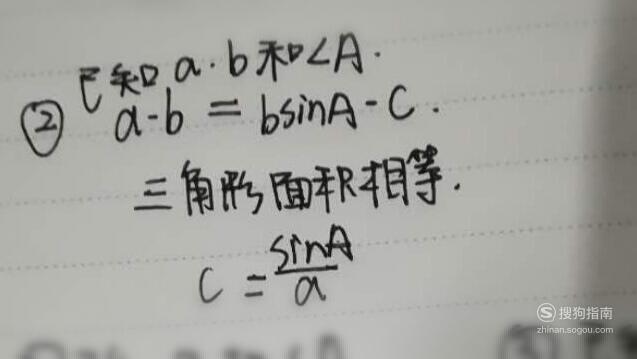 已知a.b和∠A.
② a-b = bsinA-C.
三角形面积相等.
C = sinA/a
搜狗指南
zhinan.sogou.com